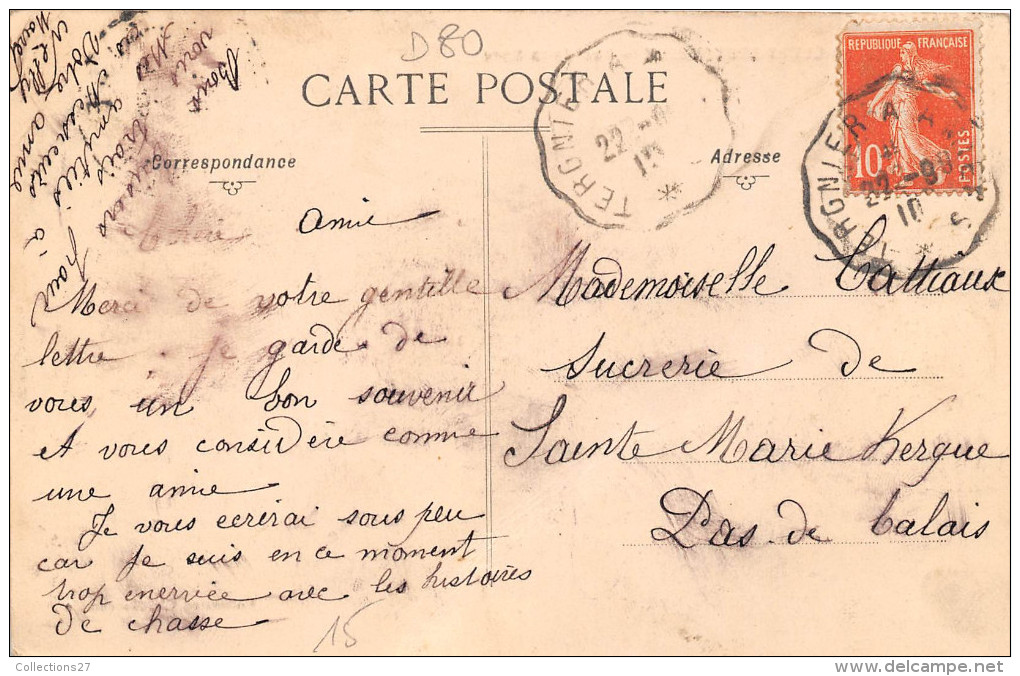 D80
CARTE POSTALE
REPUBLIQUE FRANÇAISE
10
POSTES
TERGNIER A
22
TERGNIER A
22-9
10
Correspondance
Adresse
Chère amie
Merci de votre gentille
lettre je garde de
vous un bon souvenir
et vous considère comme
une amie
Je vous ecrirai sous peu
car je suis en ce moment
trop enervée avec les histoires
de chasse
15
Mademoiselle Cattiaux
Sucrerie de
Sainte Marie Kergue
Pas. de Calais
Bons
vous
amitiés
Votre amie
Nelly
Collections27
delcampe.net